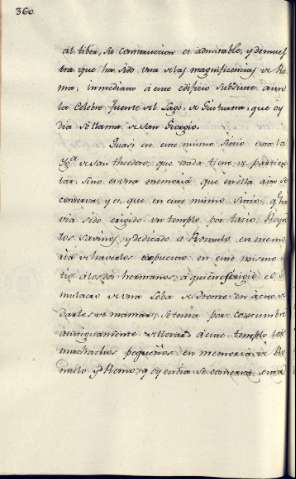 360
al tiber, su construccion es admirable, y demues
tra que ha sido una de las magnificencias de Ro
ma, inmediato à este edificio se descubre
la celebre fuente del Lago de Giuturna, que oy
dia se llama de San Giorgio.
Quasi en este mismo sitio esta la
Yg.ª de San Theodoro, que nada tiene de particu
lar, sino es una memoria que en ella aun se
conserva, y es que en este mismo sitio, ha
via sido erigido un templo por tacio Rey de
los Savinos, y dedicado à Romulo, en memo
ria de haverles expuesto en este mismo si
tio à los dos hermanos, à quien erigio el si
mulacro de una Loba de bronze en acto de
darles de mamar, y tenian por costumbre
antiguamente de llevar à este templo los
muchachos pequeños en memoria de Ro
mulo y Remo, y oy en dia se conserva